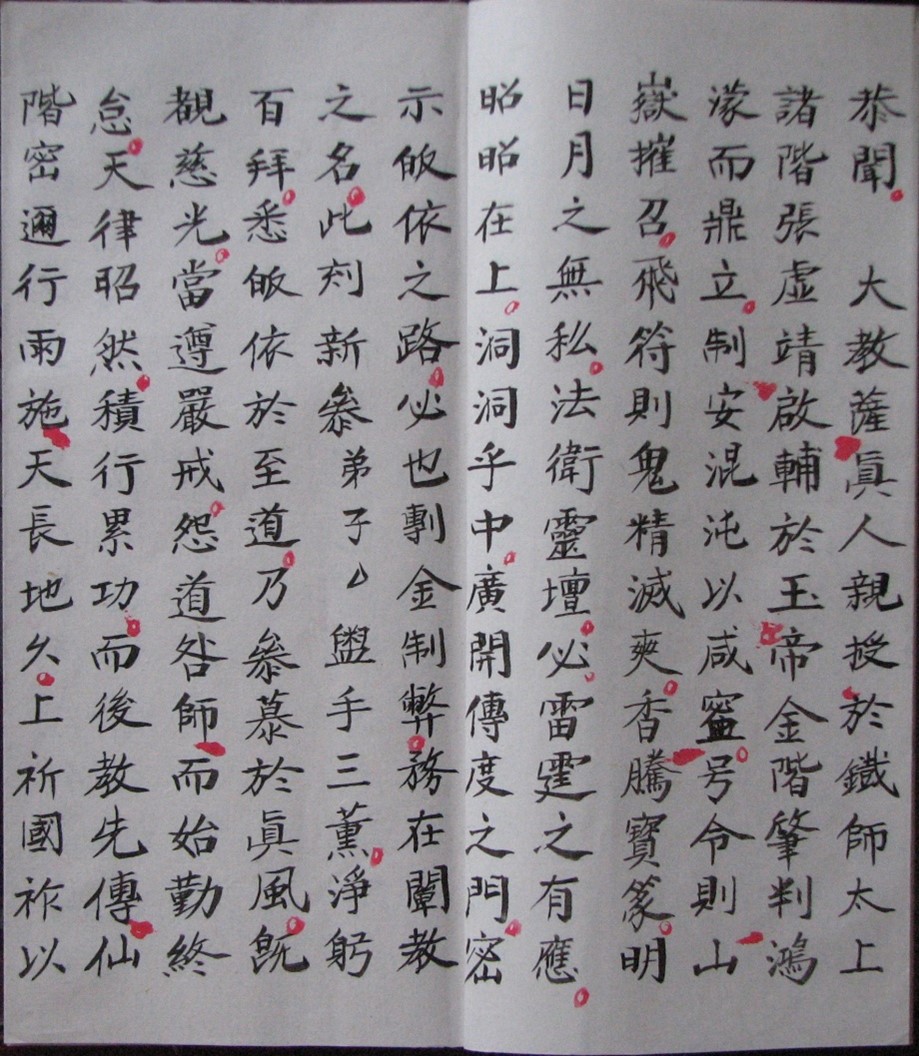 恭聞　大教薩眞人親授於鐵師太上
諸階張虛靖啟輔於玉帝金階肇判鴻
濛而鼎立制安混沌以咸寧号令則山
嶽摧召飛符則鬼精滅爽香騰寶篆明
日月之無私法衛靈壇必雷霆之有應
昭昭在上洞洞乎中廣開傳度之門密
示皈依之路必也剸金制弊務在闡教
之名此刻新叅弟子厶盥手三薰淨躬
百拜悉皈依於至道乃叅慕於眞風旣
覩慈光當遵嚴戒怨道咎師而始勤終
怠天律昭然積行累功而後教先傳仙
階密邇行雨施天長地久上祈國祚以